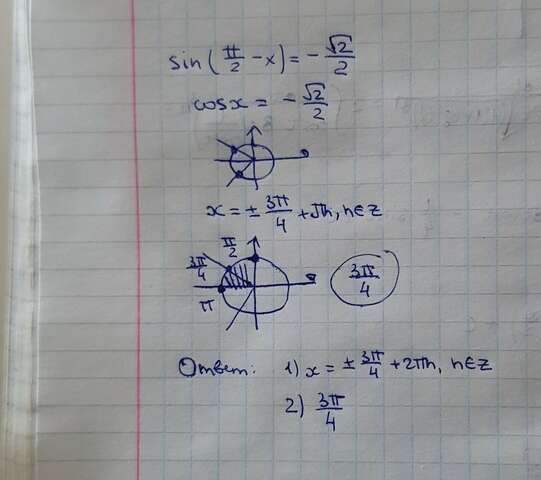 sin(π/2 - x) = - √2/2
cosx = - √2/2
x = ± 3π/4 + πn, n∈Z
π/2
3π/4
π
3π/4
Ответ: 1) x = ± 3π/4 + 2πn, n∈Z
2) 3π/4